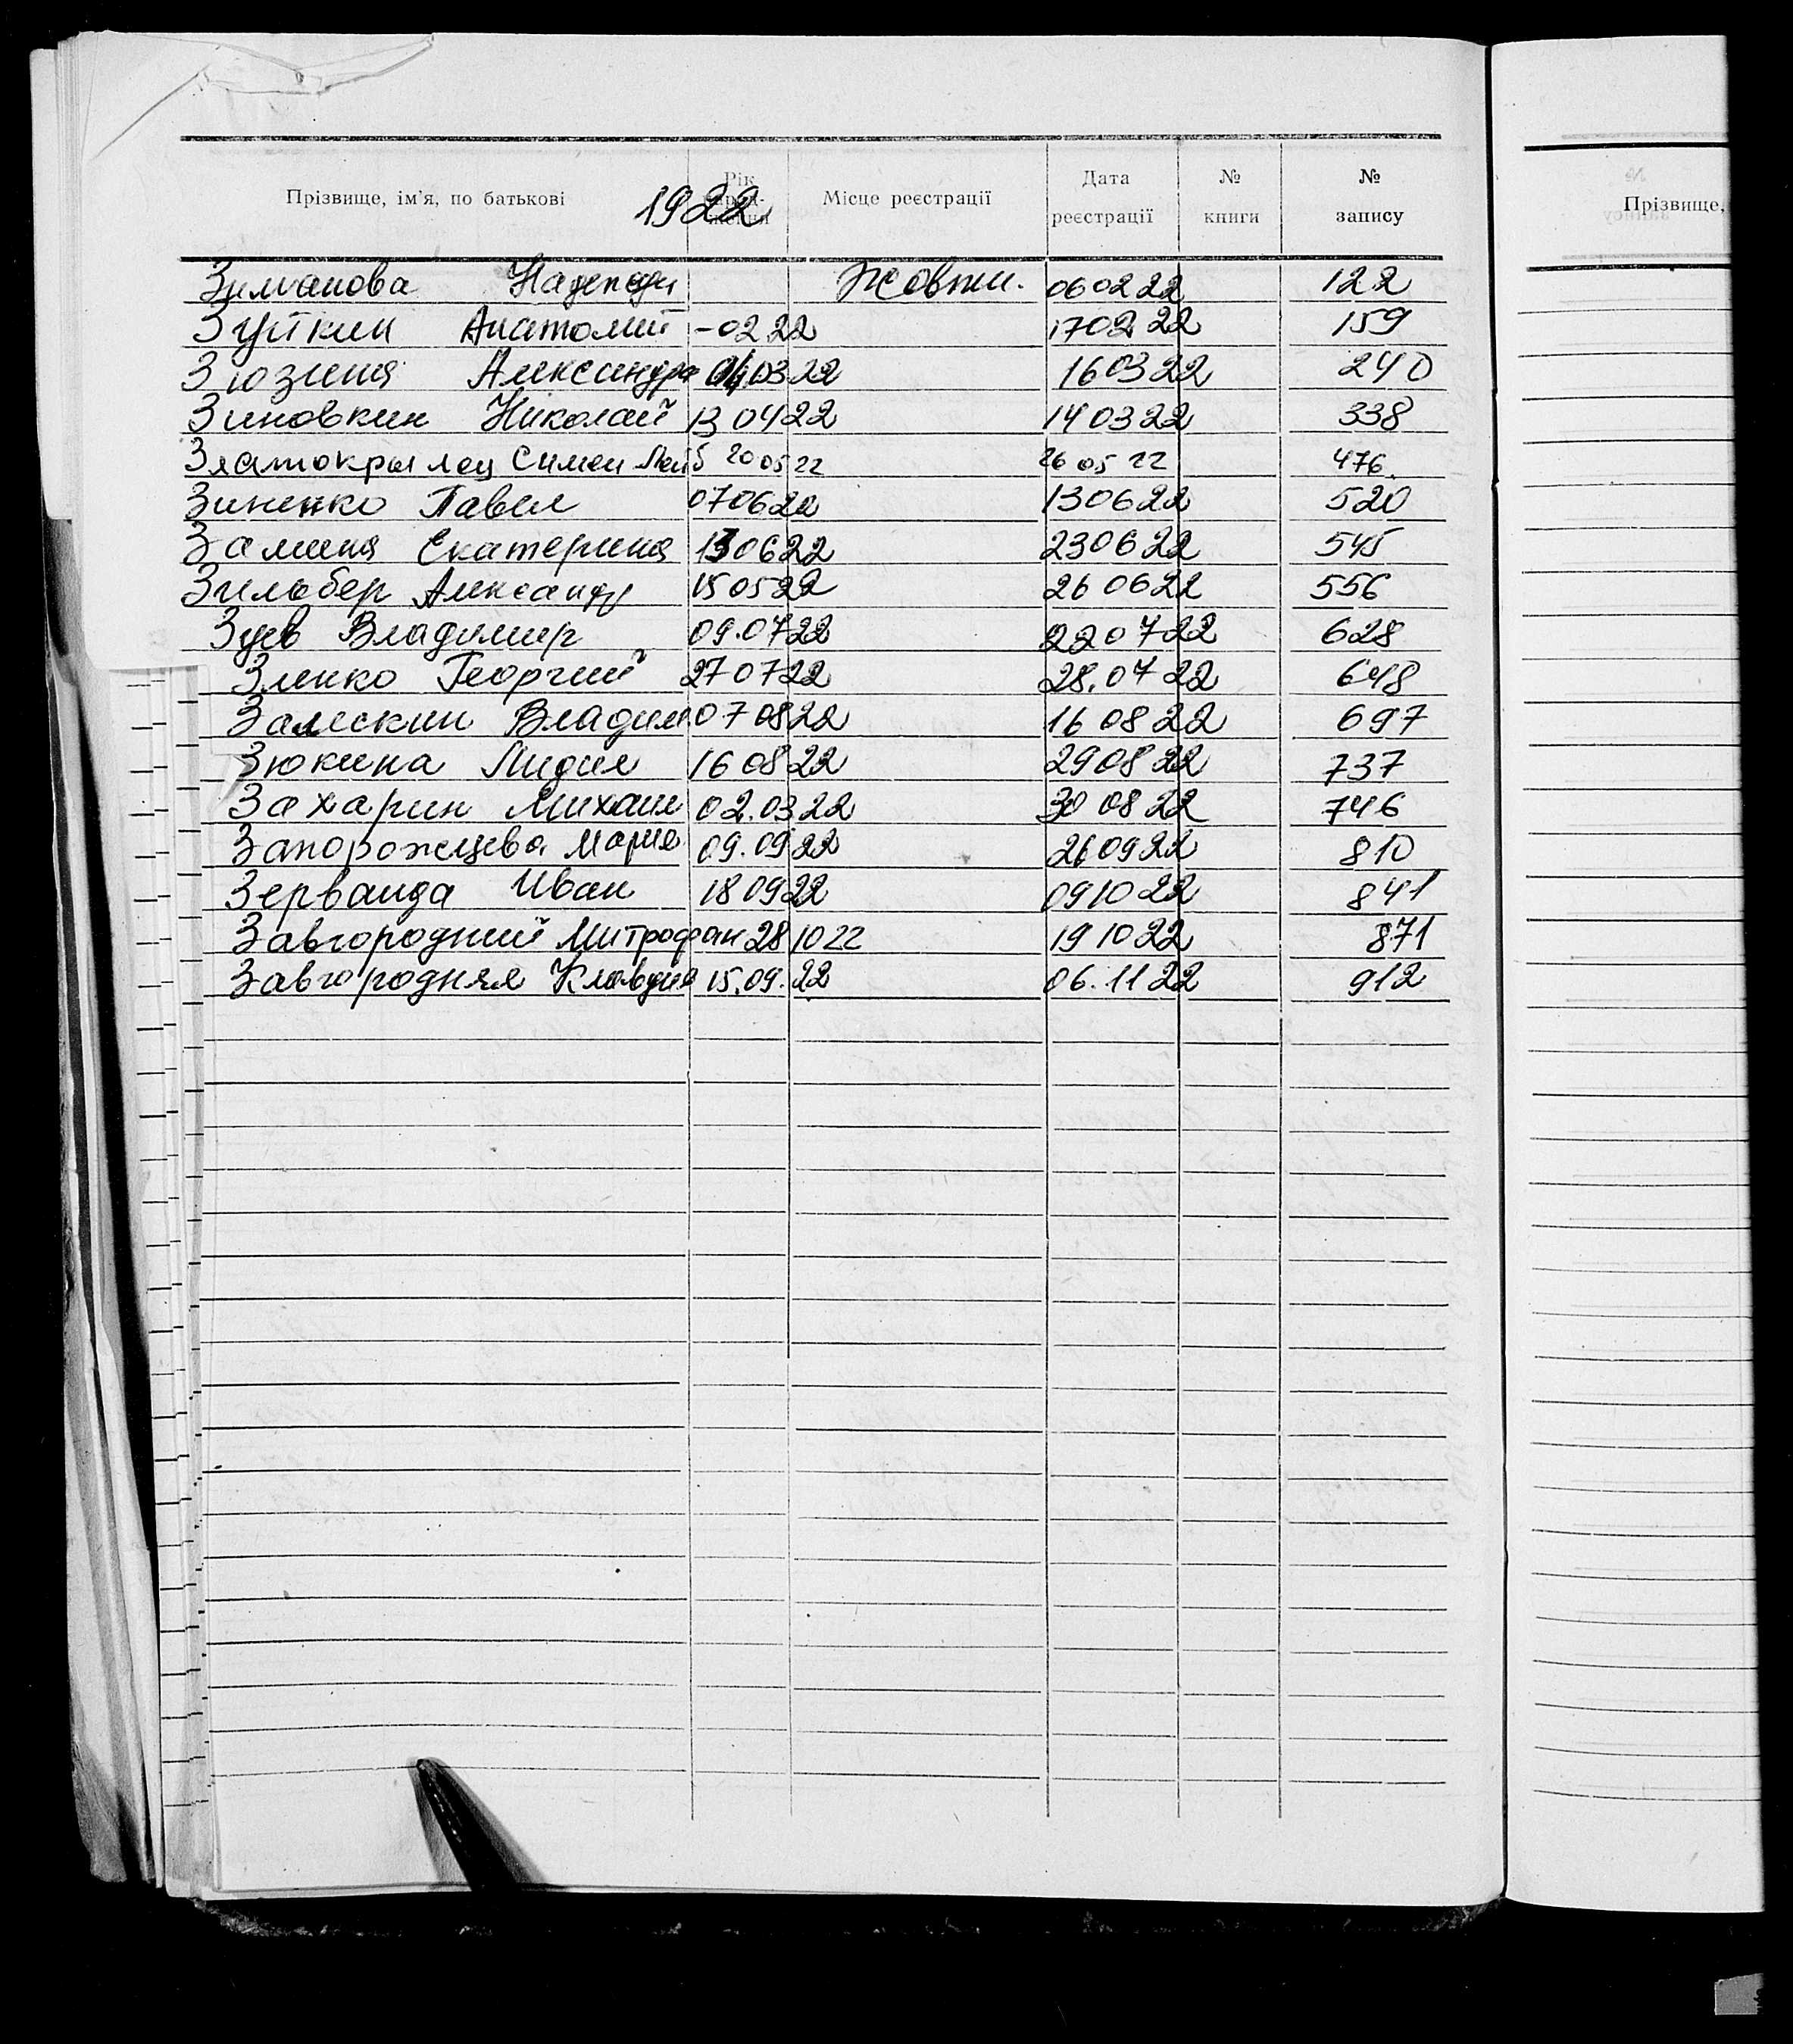 Прізвище, ім'я, по батькові 1922 Рік народження Місце реєстрації Дата реєстрації № книги № запису
Зиманова Надежди Жовтн. 06 02 22 122
Зуткин Анатолий -02 22 17 02 22 159
Зюзина Александра 03 22 16 03 22 240
Зиновкин Николай 13 04 22 14 03 22 338
Златокрылец Симен Лейб 20 05 22 26 05 22 476
Зиненко Павел 07 06 22 13 06 22 520
Замина Екатерина 13 06 22 23 06 22 545
Зильбер Александр 15 05 22 26 06 22 556
Зуев Владимир 09.07 22 22 07 22 628
Зленко Георгий 27 07 22 28.07 22 648
Залескин Владим 07 08 22 16 08 22 697
Зюкина Лидия 16 08 22 29 08 22 737
Захарин Михаил 02.03 22 30 08 22 746
Запорожцева Мария 09.09 22 26 09 22 810
Зерванда Иван 18 09 22 09 10 22 841
Завгородний Митрофан 28 10 22 19 10 22 871
Завгородняя Клавдия 15.09.22 06.11 22 912
№
Прізвище,